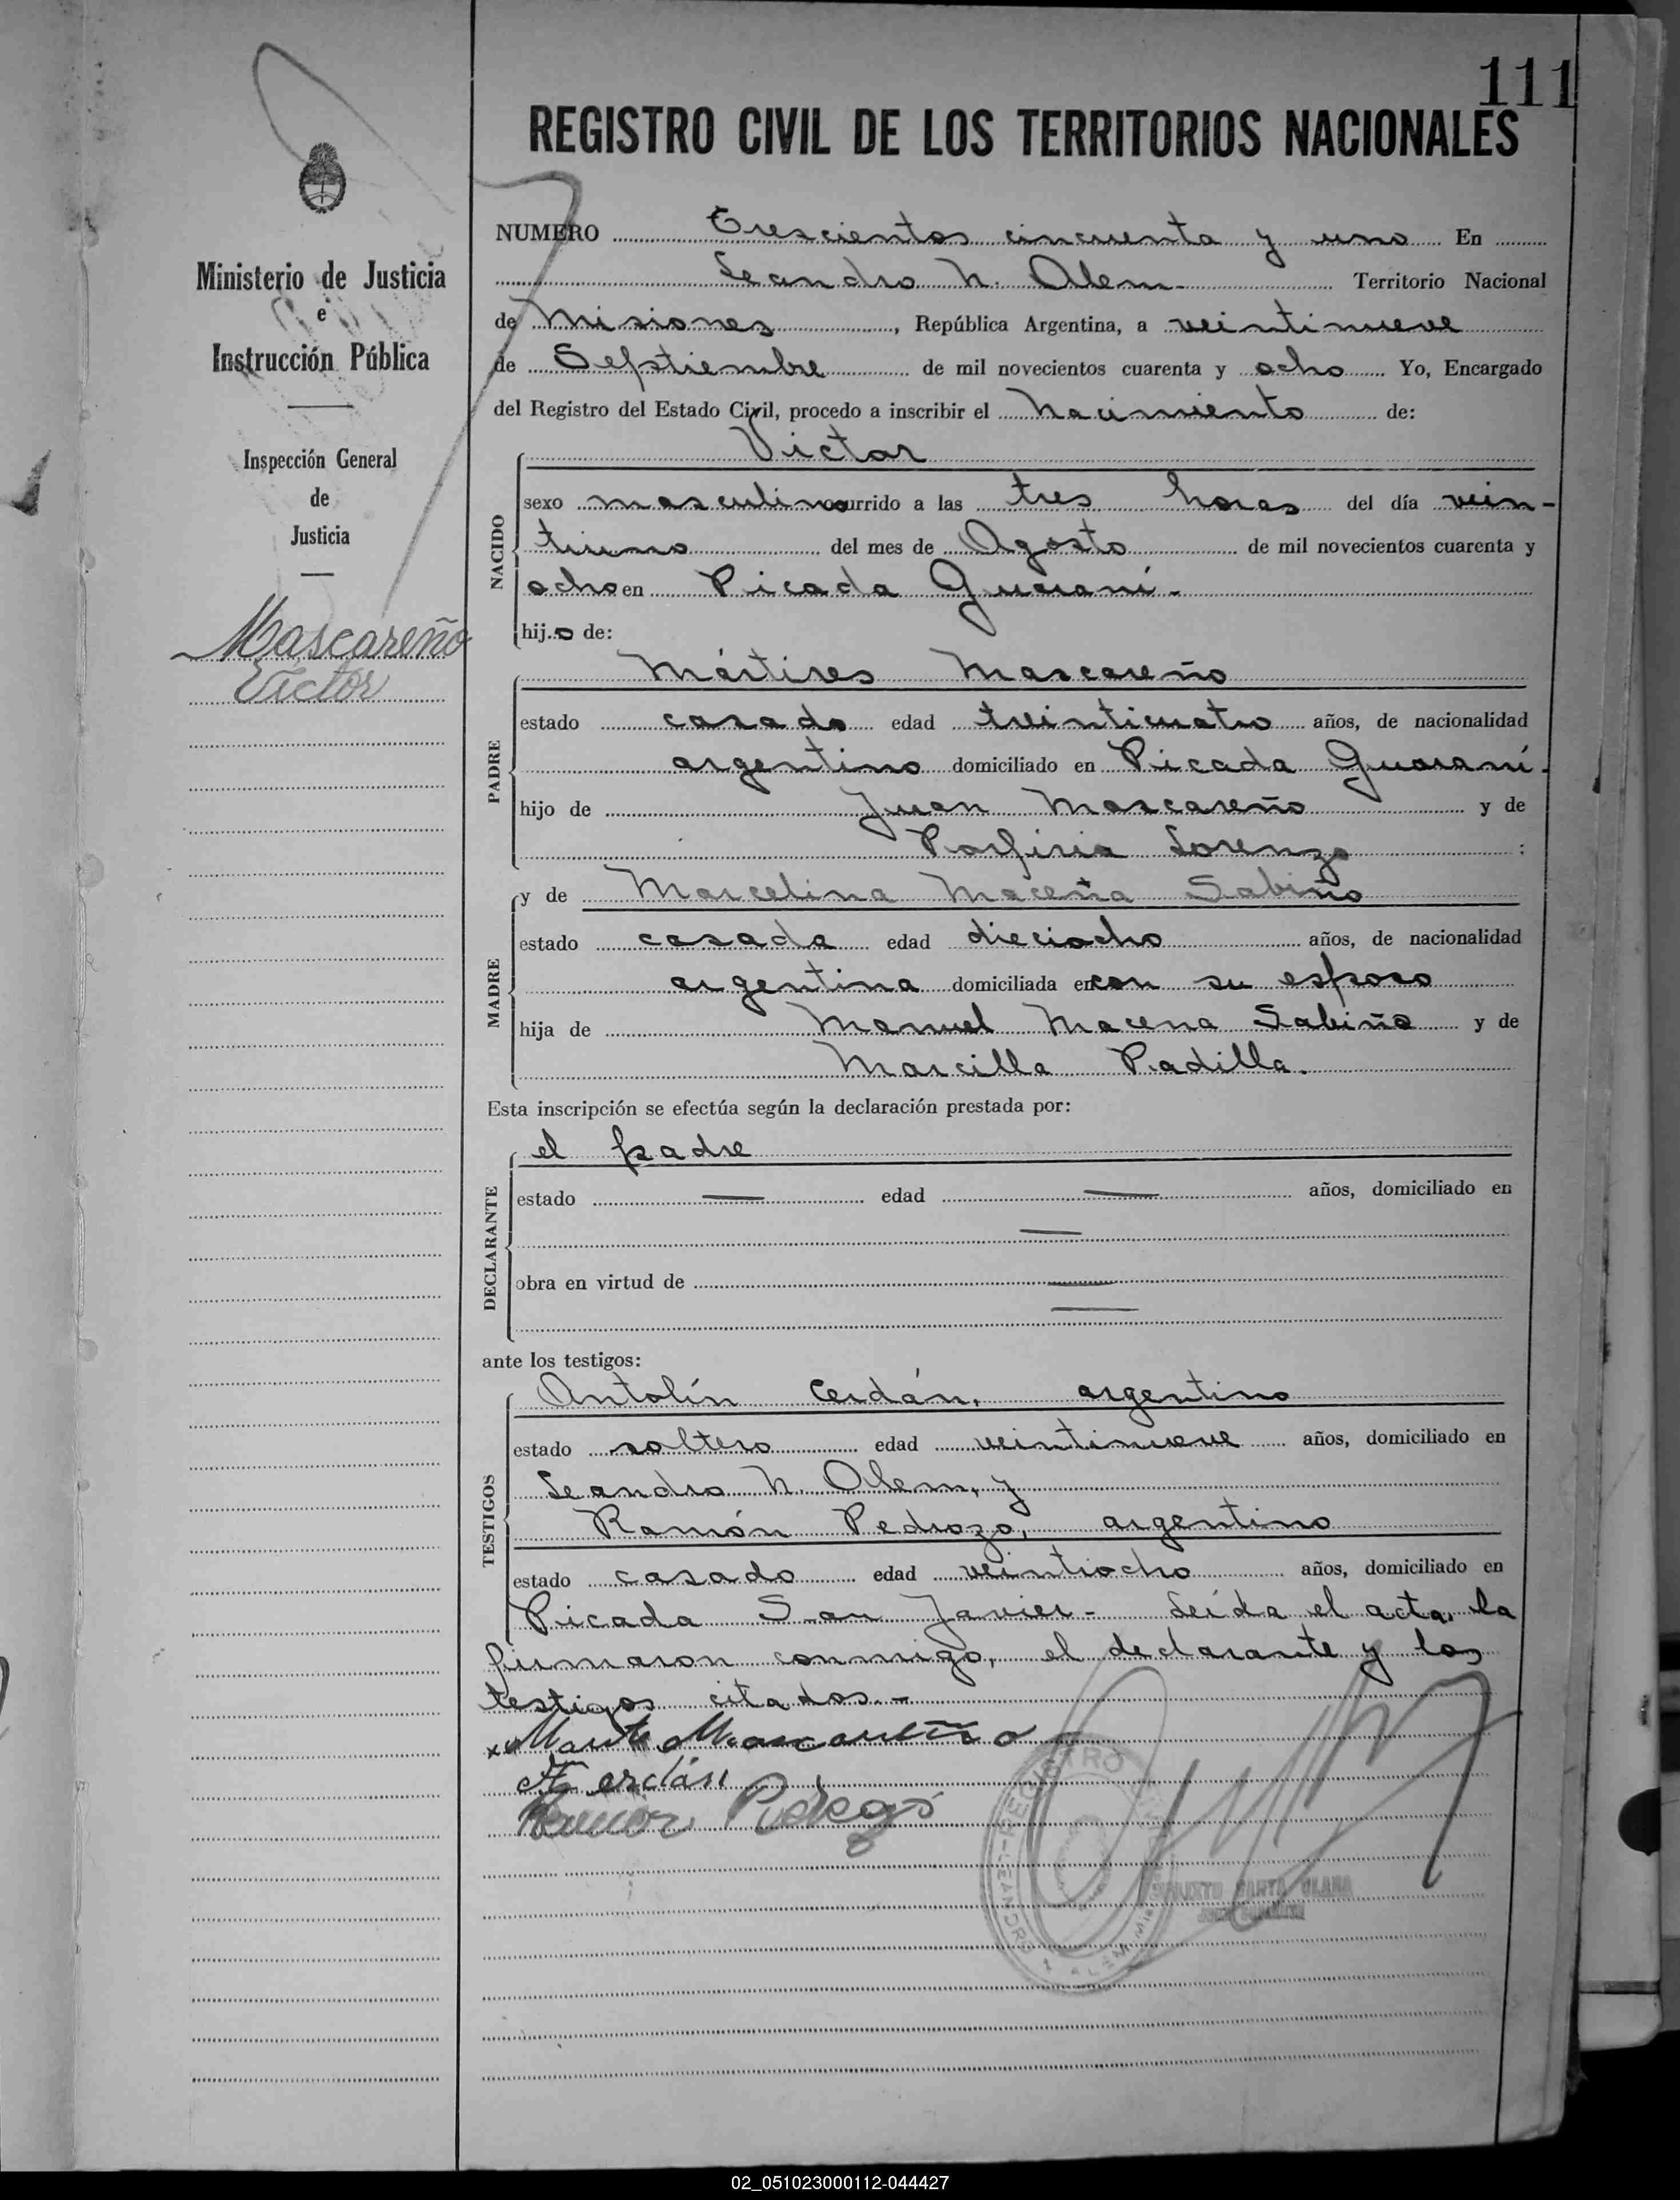 111
REGISTRO CIVIL DE LOS TERRITORIOS NACIONALES
Ministerio de Justicia
e
Instrucción Pública
Inspección General
de
Justicia
Mascareño
Victor
NUMERO Trescientos cincuenta y uno En
Leandro N. Alem- Territorio Nacional
de Misiones, República Argentina, a veintinueve
de Septiembre de mil novecientos cuarenta y ocho Yo, Encargado
del Registro del Estado Civil, procedo a inscribir el nacimiento de:
Victor
NACIDO
sexo masculino ocurrido a las tres horas del día vein-
tiuno del mes de Agosto de mil novecientos cuarenta y
ocho en Picada Guaraní.-
hijo de:
Mártires Mascareño
PADRE
estado casado edad treinticuatro años, de nacionalidad
argentino domiciliado en Picada Guaraní.
hijo de Juan Mascareño y de
Porfiria Lorenzo :
MADRE
y de Marcelina Maceña Sabiño
estado casada edad dieciocho años, de nacionalidad
argentina domiciliada en con su esposo
hija de Manuel Macena Sabiño y de
Marcilla Padilla.
Esta inscripción se efectúa según la declaración prestada por:
DECLARANTE
el padre
estado — edad — años, domiciliado en
—
obra en virtud de —
—
ante los testigos:
TESTIGOS
Antolín Cerdán, argentino
estado soltero edad veintinueve años, domiciliado en
Leandro N. Alem, y
Ramón Pedrozo, argentino
estado casado edad veintiocho años, domiciliado en
Picada San Javier- Leída el acta, la
firmaron conmigo, el declarante y los
testigos citados.-
Mascareño
Cerdán
Ramón
REGISTRO
LEANDRO N. ALEM
SANTA CLARA
02_051023000112-044427